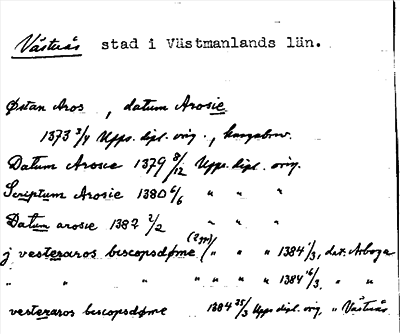 Västerås stad i Västmanlands län.
Østan Aros, datum Arosie
1373 3/4 Upps. dipl. orig.,
Datum Arosie 1379 8/12 Upps. dipl. orig.
Scriptum Arosie 1380 6/6 " " "
Datum arosie 1382 2/2 " " "
j vesteraros biscopsdøme (2 ggr) " " " 1384 1/3, dat. Arboga
" " " " " " " 1384 16/3 " "
vesteraros biscopsdøme 1384 25/3 Upps dipl. orig. " Västerås